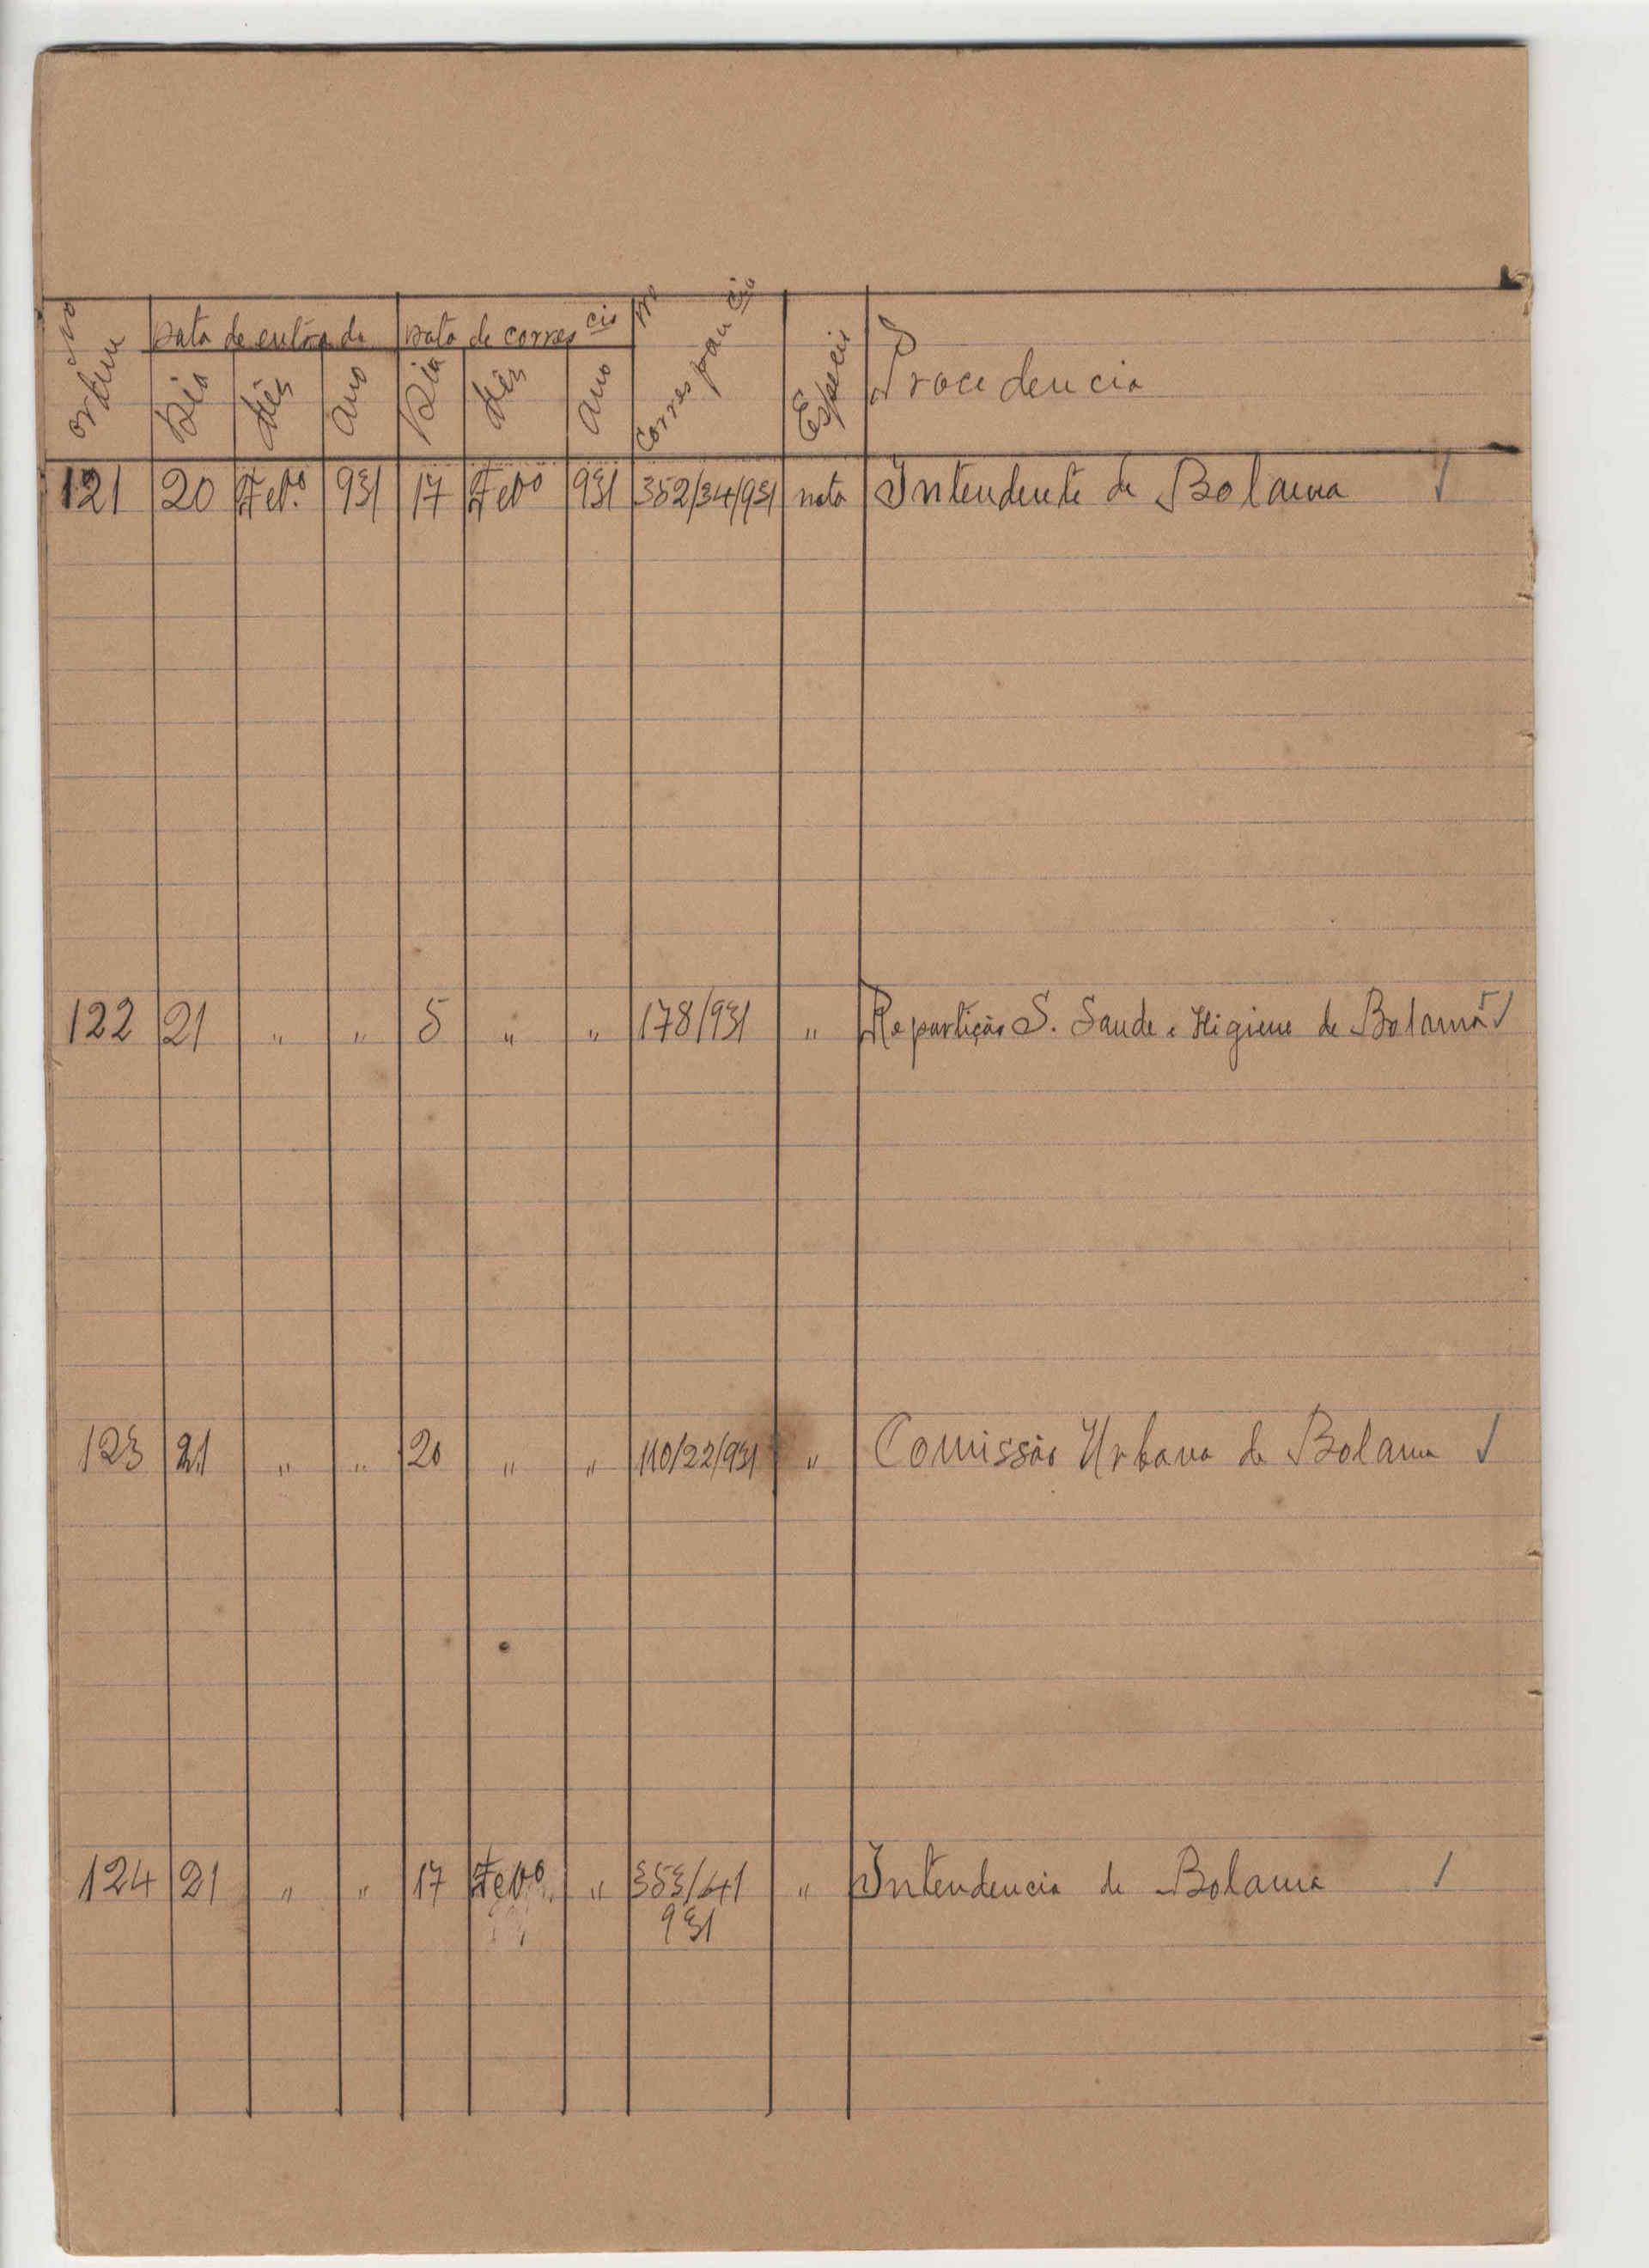 No ordem Data de entrada Data de corres cia No Correspon cia Especie Procedencia
Dia Mês Ano Dia Mês Ano
121 20 Fevº 931 17 Fevº 931 352/34/931 nota Intendente de Bolama ✓
122 21 " " 5 " " 178/931 " Repartição S. Saude e Higiene de Bolama ✓
123 21 " " 20 " " 110/22/931 " Comissão Urbana de Bolama ✓
124 21 " " 17 Fevº " 353/41 " Intendencia de Bolama ✓
931